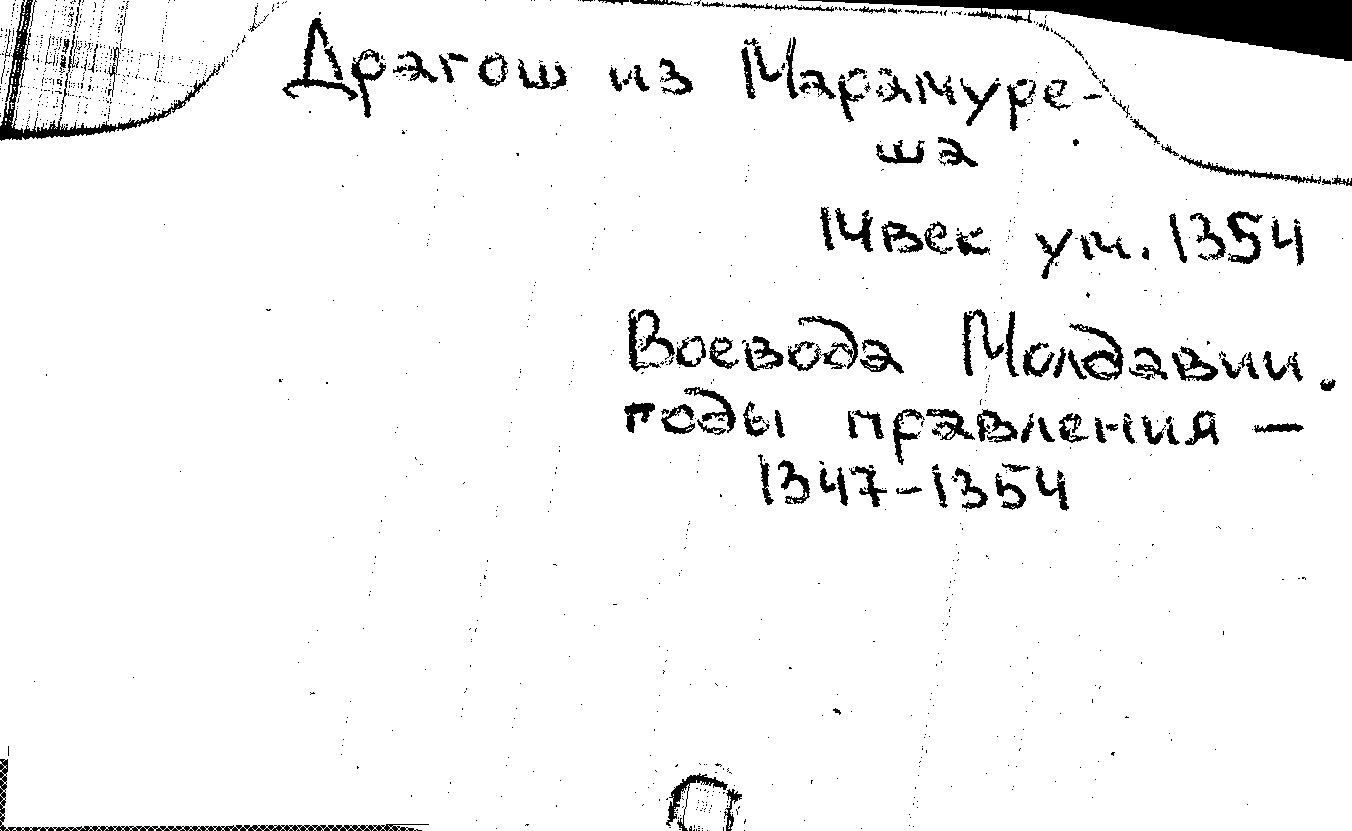 Драгош из Марамуре-
ша
14век ум. 1354
Воевода Молдавии.
годы правления —
1347-1354